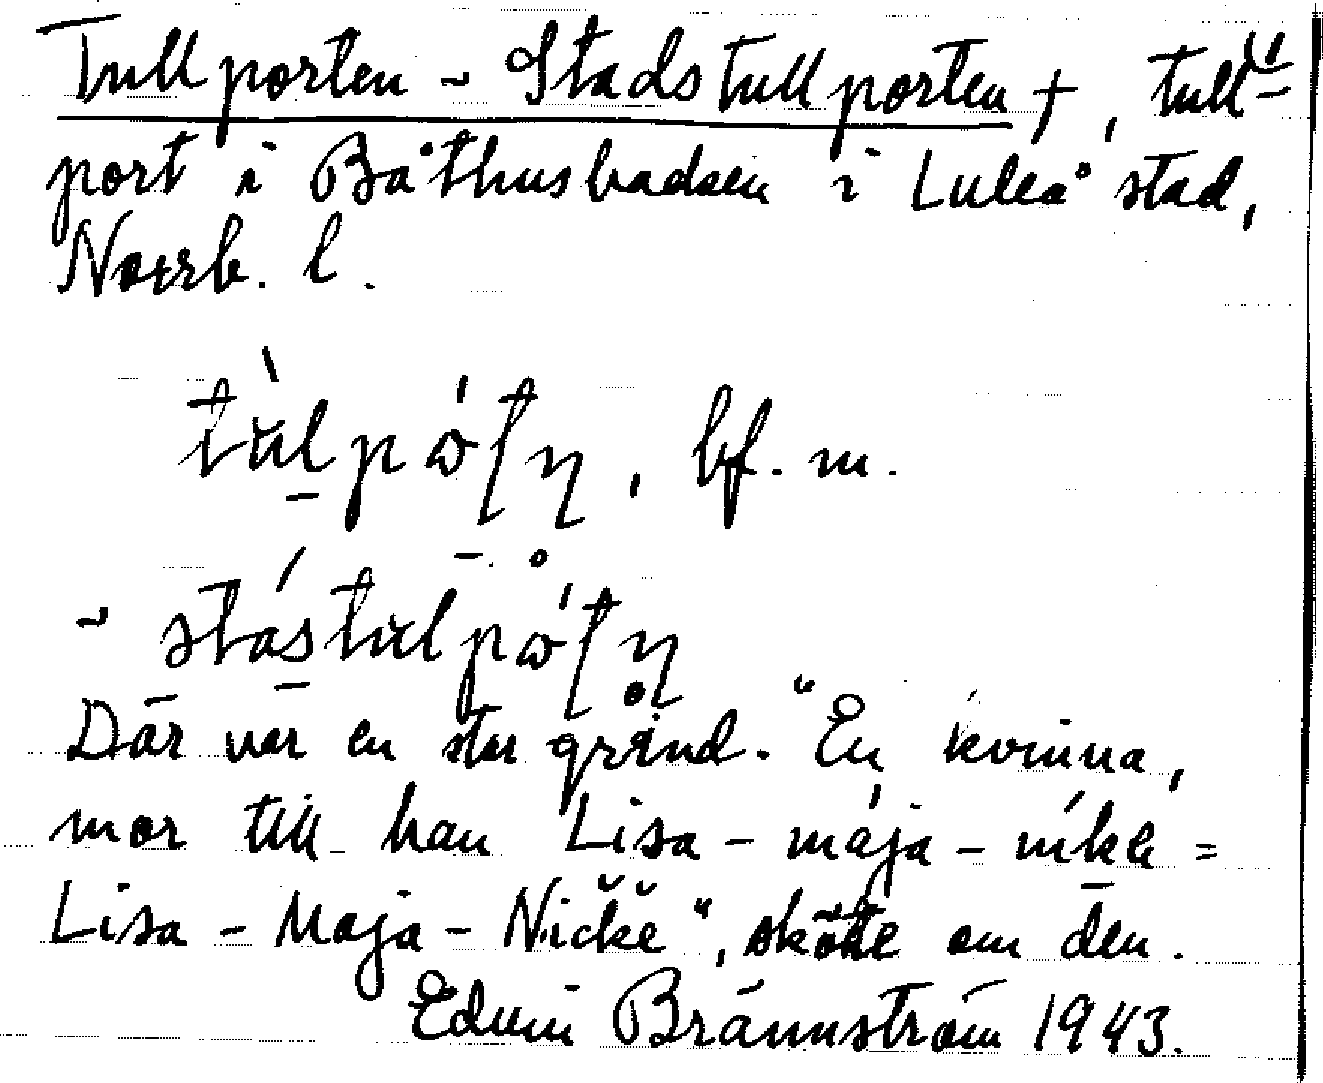 Tullporten ~ Stadstullporten †, tull-
port i Båthusbacken i Luleå stad,
Norrb. l.
, bf. m.
~
Där var en stor grind. "En kvinna,
mor till han Lisa-mája-níkk =
Lisa-Maja-Nicke", skötte om den.
Edvin Brännström 1943.